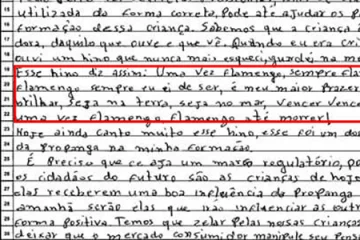 utilizada da forma correta, Pode ajudar os p
formação dessa criança. Sabemos que a criança i
dora, daquilo que ouve e que vê. Quando eu era cri
ouvi um hino que nunca mais esqueci, guardei na me
Esse hino diz assim: Uma vez flamengo, sempre fla
flamengo sempre eu ei de ser, é meu maior prazer
brilhar, seja na terra, seja no mar, Vencer Vence
uma vez flamengo flamengo até morrer!
Hoje ainda canto muito esse hino, esse foi um do
da propanga na minha formação.
É Preciso que ce aja um marco regulatório, po
os cidadãos do futuro são as crianças de hoje
elas receberem uma boa influência da Propanga
amanhã serão elas que não influenciar as outr
forma positiva Temos que zelar Pelas nossas crianç
deixar que o mercado consumidor manipule seu pens